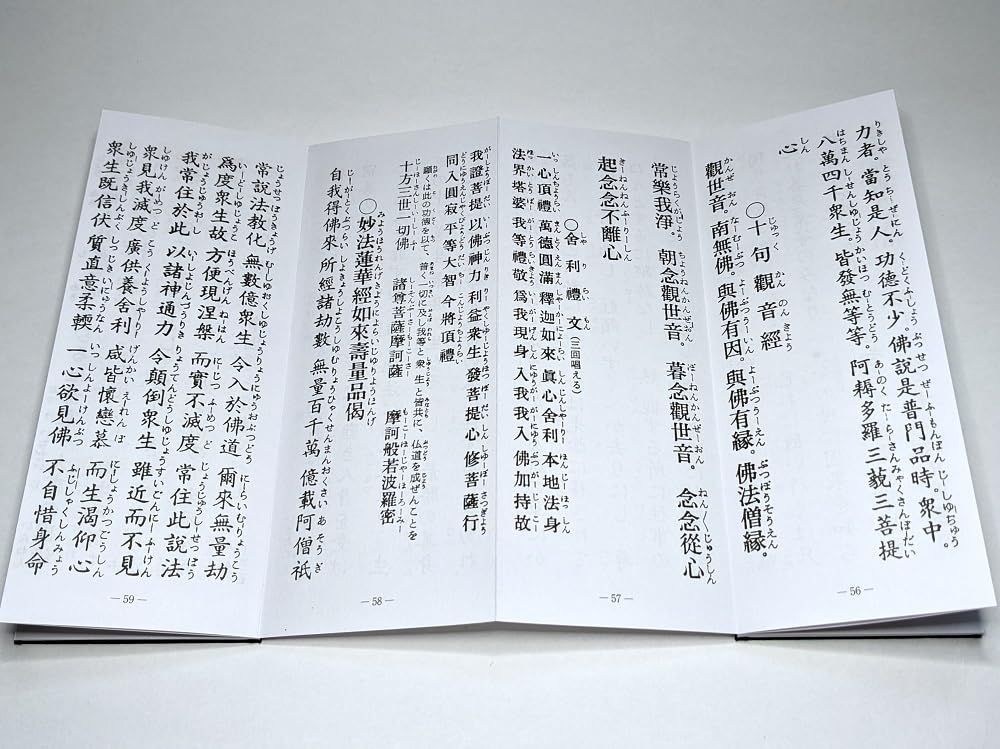 力者。當知是人。功德不少。佛說是普門品時。衆中。
八萬四千衆生。皆發無等等。阿耨多羅三藐三菩提
心
〇十句觀音經
觀世音。南無佛。與佛有因。與佛有緣。佛法僧緣。
—56—
常樂我淨 朝念觀世音。暮念觀世音。念念從心
起念念不離心
〇舍利禮文(三回唱える)
一心頂禮 萬德圓滿 釋迦如來 眞心舍利 本地法身
法界塔婆 我等禮敬 爲我現身 入我我入 佛加持故
—57—
我證菩提 以佛神力 利益衆生 發菩提心 修菩薩行
同入圓寂 平等大智 今將頂禮
願くは此の功德を以て、普く一切に及し我等と衆生と皆共に、仏道を成ぜんことを
十方三世一切佛 諸尊菩薩摩訶薩 摩訶般若波羅密
〇妙法蓮華經如來壽量品偈
自我得佛來 所經諸劫數 無量百千萬 億載阿僧祇
—58—
常說法教化 無數億衆生 令入於佛道 爾來無量劫
爲度衆生故 方便現涅槃 而實不滅度 常住此說法
我常住於此 以諸神通力 令顛倒衆生 雖近而不見
衆見我滅度 廣供養舍利 咸皆懷戀慕 而生渴仰心
衆生既信伏 質直意柔輭 一心欲見佛 不自惜身命
—59—